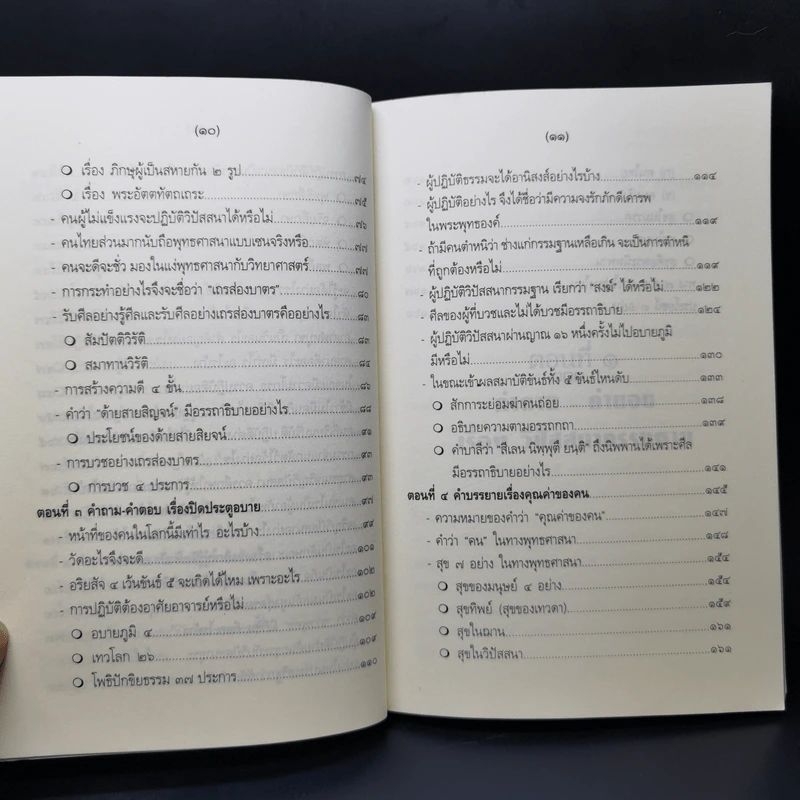 (๑๐)
❍ เรื่อง ภิกษุผู้เป็นสหายกัน ๒ รูป ๗๔
❍ เรื่อง พระอัตตทัตถเถระ ๗๕
- คนผู้ไม่แข็งแรงจะปฏิบัติวิปัสสนาได้หรือไม่ ๗๖
- คนไทยส่วนมากนับถือพุทธศาสนาแบบเซนจริงหรือ ๗๗
- คนจะดีจะชั่ว มองในแง่พุทธศาสนากับวิทยาศาสตร์ ๗๗
- การกระทำอย่างไรจึงจะชื่อว่า "เถรส่องบาตร" ๘๐
- รับศีลอย่างรู้ศีลและรับศีลอย่างเถรส่องบาตรคืออย่างไร ๘๓
❍ สัมปัตติวิรัติ ๘๓
❍ สมาทานวิรัติ ๘๔
- การสร้างความดี ๔ ชั้น ๘๖
- คำว่า "ด้ายสายสิญจน์" มีอรรถาธิบายอย่างไร ๘๘
❍ ประโยชน์ของด้ายสายสิยจน์ ๙๑
- การบวชอย่างเถรส่องบาตร ๙๓
❍ การบวช ๔ ประการ ๙๓
ตอนที่ ๓ คำถาม-คำตอบ เรื่องปิดประตูอบาย ๙๗
- หน้าที่ของคนในโลกนี้มีเท่าไร อะไรบ้าง ๙๙
- วัดอะไรจึงจะดี ๑๐๑
- อริยสัจ ๔ เว้นขันธ์ ๕ จะเกิดได้ไหม เพราะอะไร ๑๐๒
- การปฏิบัติต้องอาศัยอาจารย์หรือไม่ ๑๐๒
❍ อบายภูมิ ๔ ๑๐๙
❍ เทวโลก ๒๖ ๑๐๙
❍ โพธิปักขิยธรรม ๓๗ ประการ ๑๑๐
(๑๑)
- ผู้ปฏิบัติธรรมจะได้อานิสงส์อย่างไรบ้าง ๑๑๔
- ผู้ปฏิบัติอย่างไร จึงได้ชื่อว่ามีความจงรักภักดีเคารพ
ในพระพุทธองค์ ๑๑๙
- ถ้ามีคนตำหนิว่า ช่างแก่กรรมฐานเหลือเกิน จะเป็นการตำหนิ
ที่ถูกต้องหรือไม่ ๑๑๙
- ผู้ปฏิบัติวิปัสสนากรรมฐาน เรียกว่า "สงฆ์" ได้หรือไม่ ๑๒๒
- ศีลของผู้ที่บวชและไม่ได้บวชมีอรรถาธิบาย ๑๒๔
- ผู้ปฏิบัติวิปัสสนาผ่านญาณ ๑๖ หนึ่งครั้งไม่ไปอบายภูมิ
มีหรือไม่ ๑๓๐
- ในขณะเข้าผลสมาบัติขันธ์ทั้ง ๕ ขันธ์ไหนดับ ๑๓๓
❍ สักการะย่อมฆ่าคนถ่อย ๑๓๘
❍ อธิบายความตามอรรถกถา ๑๓๙
❍ คำบาลีว่า "สีเลน นิพฺพุตึ ยนฺติ" ถึงนิพพานได้เพราะศีล
มีอรรถาธิบายอย่างไร ๑๔๑
ตอนที่ ๔ คำบรรยายเรื่องคุณค่าของคน ๑๔๕
- ความหมายของคำว่า "คุณค่าของคน" ๑๔๗
- คำว่า "คน" ในทางพุทธศาสนา ๑๔๘
- สุข ๗ อย่าง ในทางพุทธศาสนา ๑๕๔
❍ สุขของมนุษย์ ๔ อย่าง ๑๕๔
❍ สุขทิพย์ (สุขของเทวดา) ๑๕๙
❍ สุขในฌาน ๑๖๑
❍ สุขในวิปัสสนา ๑๖๑